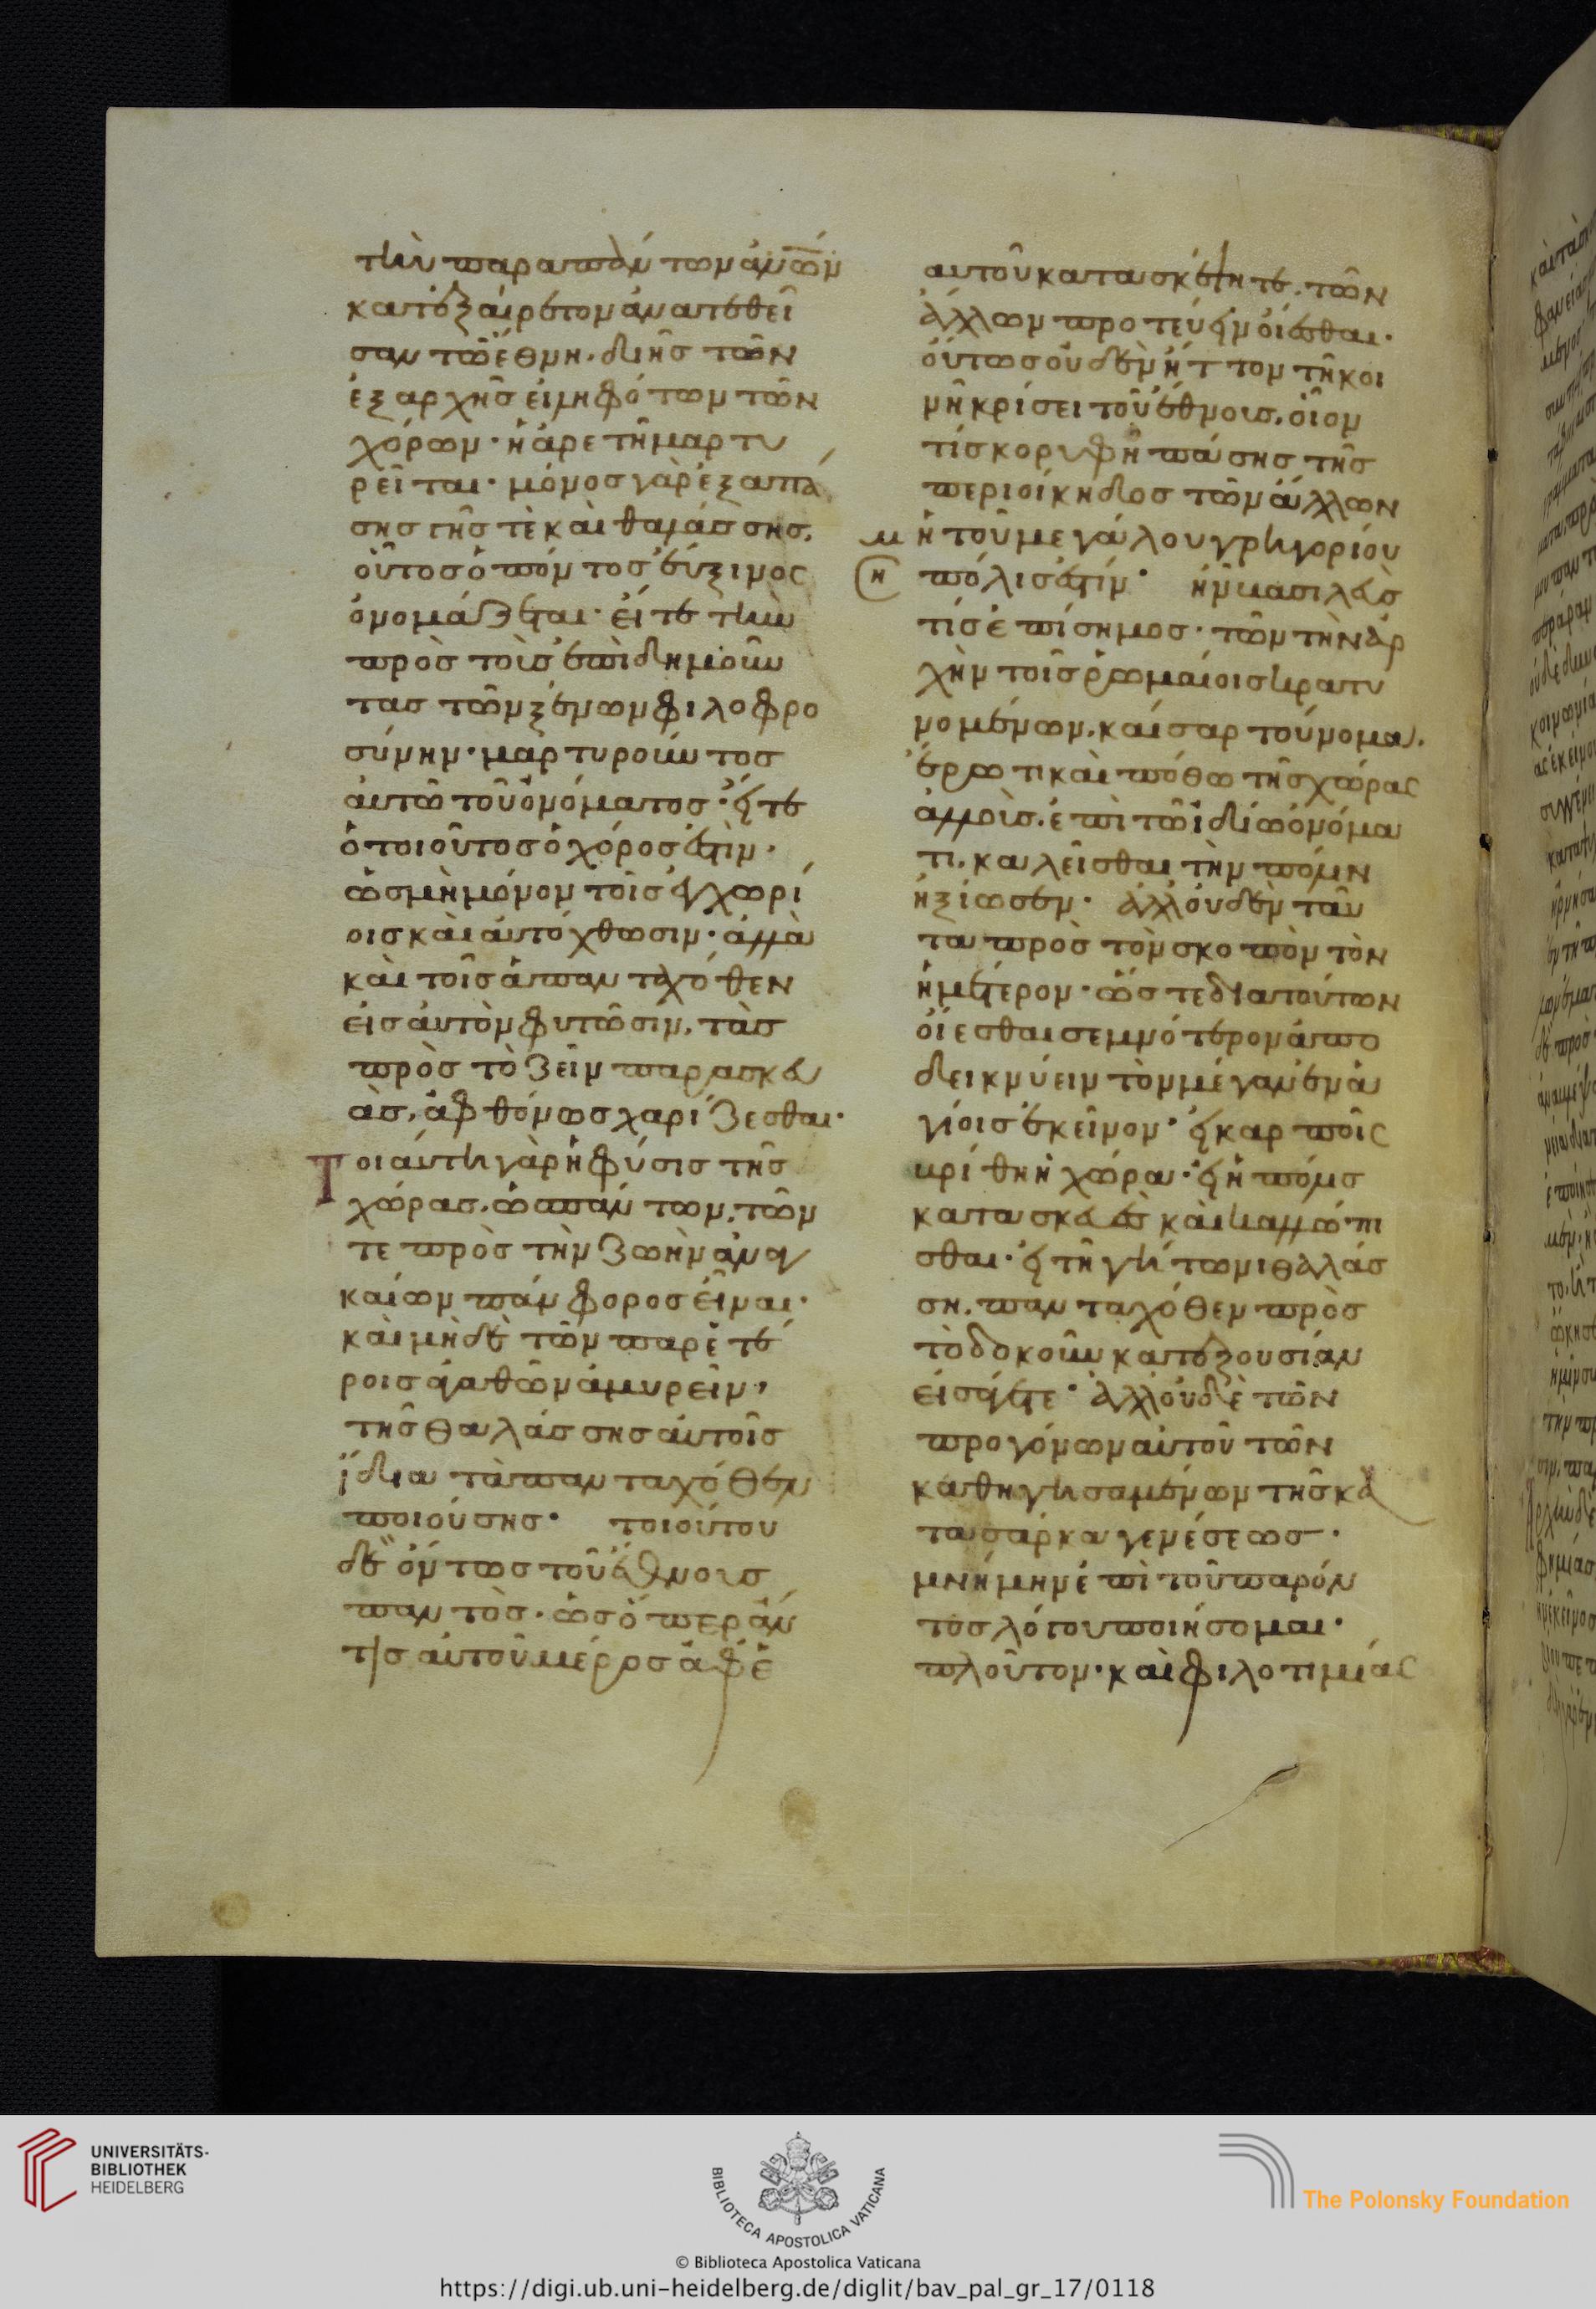 τὴν παρα πάντων ἀν̅ω̅ν̅
κατ' ἐξαίρετον ἀνατεθεῖ
σαν τῶ ἔθνη. δι ἧς τῶν
ἐξαρχῆς εἰληφότων τῶν
χόρων· ἡ ἀρετῆ μαρτυ
ρεῖται· μόνος γὰρ ἐξ ἁπά
σης γῆς τὲ καὶ θαλάσσης.
οὗτος ὁ πόντος εὔξινος
ὀνομάζεται· εἴτε τὴν
πρὸς τοὺς ἐπιδημοῦν
τας τῶν ξένων φιλοφρο
σύνην· μαρτυροῦντος
αὐτῶ τοῦ ὀνόματος· εἴτε
ὁ τοιοῦτος ὁ χόρος ἐστὶν·
ὡς μὴ μόνον τοῖς ἐγχωρί
οις καὶ αὐτόχθωσιν· ἀλλὰ
καὶ τοῖς ἁπανταχόθεν
εἰς αὐτὸν φυτῶσιν. τὰς
πρὸς τὸ ζεῖν παρασκευ
ὰς. ἀφθόνως χαρίζεσθαι·
Τοιαύτη γὰρ ἡ φύσις τῆς
χώρας. ὡς πάντων. τῶν
τε πρὸς τὴν ζωὴν ἀναγ
καίων πάμφορος εἶναι·
καὶ μὴ δὲ τῶν παρ' ἑτέ
ροις ἀγαθῶν ἀμυρεῖν,
τῆς θαλάσσης αὐτοῖς
ἴδια τὰ πανταχόθεν
ποιούσης· τοιούτου
δὲ ὄντως τοῦ ἔθνους
παντὸς. ὡς ὅπερ ἄν
τις αὐτοῦ μέρος ἀφ' ἑ
αυτοῦ κατασκέπτητε. τῶν
ἄλλων προτεύειν οἴεσθαι·
οὕτως οὐδὲν ἧττον τῆ κοι
νῆ κρίσει τοῦ ἔθνους. οἷον
τίς κορυφὴ πάσης τῆς
περιοίκηδος τῶν ἄλλων
ἡ τοῦ μεγάλου γρηγορίου
πόλις ἐστίν· ἣν βασιλεὺς
τίς ἐπίσημος· τῶν τὴν ἀρ
χὴν τοῖς ῥωμαίοις κρατυ
νομένων. καίσαρ τοὔνομα.
ἔρωτι καὶ πόθω τῆς χώρας
ἁλλοὶς. ἐπὶ τῶ ἰδίω ὀνόμα
τι. καλεῖσθαι τὴν πόλιν
ἠξίωσεν· ἀλλ' οὐδὲν ταῦ
τα πρὸς τὸν σκοπὸν τὸν
ἡμέτερον· ὥστε διατούτων
οἴεσθαι σεμνότερον ἀπο
δεικνύειν τὸν μέγαν ἐν ἁ
γίοις ἐκεῖνον· εἰ καρποῖς
βρίθη ἡ χώρα· εἰ ἡ πόλις
κατασκευαῖς καὶ καλλώπι
σθαι· εἰ τῆ γείτωνι θαλάσ
ση. πανταχόθεν πρὸς
τὸ δοκοῦν κατ' ἐξουσίαν
εἰσάγετε· ἀλλ' οὐδὲ τῶν
προγόνων αὐτοῦ τῶν
καθηγησαμένων τῆς κα
τα σάρκα γενέσεως·
μνήμην ἐπὶ τοῦ παρόν
τος λόγου ποιήσομαι·
πλοῦτον· καὶ φιλοτιμίας
UNIVERSITÄTS-
BIBLIOTHEK
HEIDELBERG
BIBLIOTECA APOSTOLICA VATICANA
The Polonsky Foundation
© Biblioteca Apostolica Vaticana
https://digi.ub.uni-heidelberg.de/diglit/bav_pal_gr_17/0118